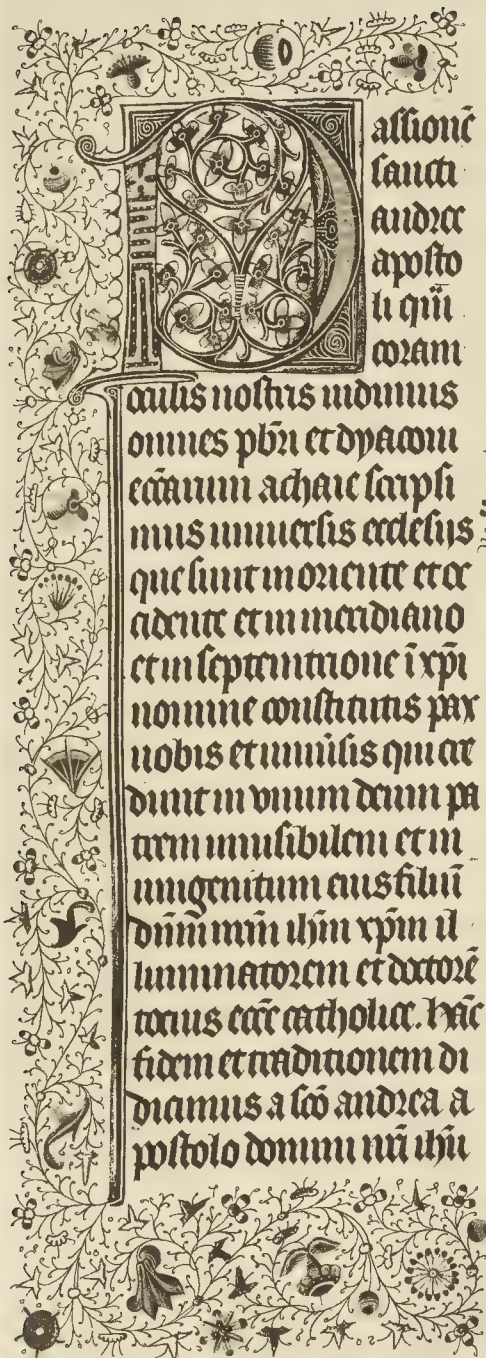 Passionē
sancti
andree
aposto
li quā
coram
oculis nostris uidimus
omnes pb̄ri et dyaconi
ecc̄arum achaie scripsi
mus uniuersis ecclesijs
que sunt in oriente et oc
cidente et in meridiano
et in septemtrione ī xp̄i
nomine constitutis pax
uobis et uniuīsis qui cre
dunt in vnum deum pa
trem inuisibilem et in
unigenitum eius filiū
dn̄m nr̄m ih̄m xp̄m il
luminatorem et doctorē
tocius ecc̄e catholice. hāc
fidem et traditionem di
dicimus a sc̄o andrea a
postolo domini nr̄i ih̄u